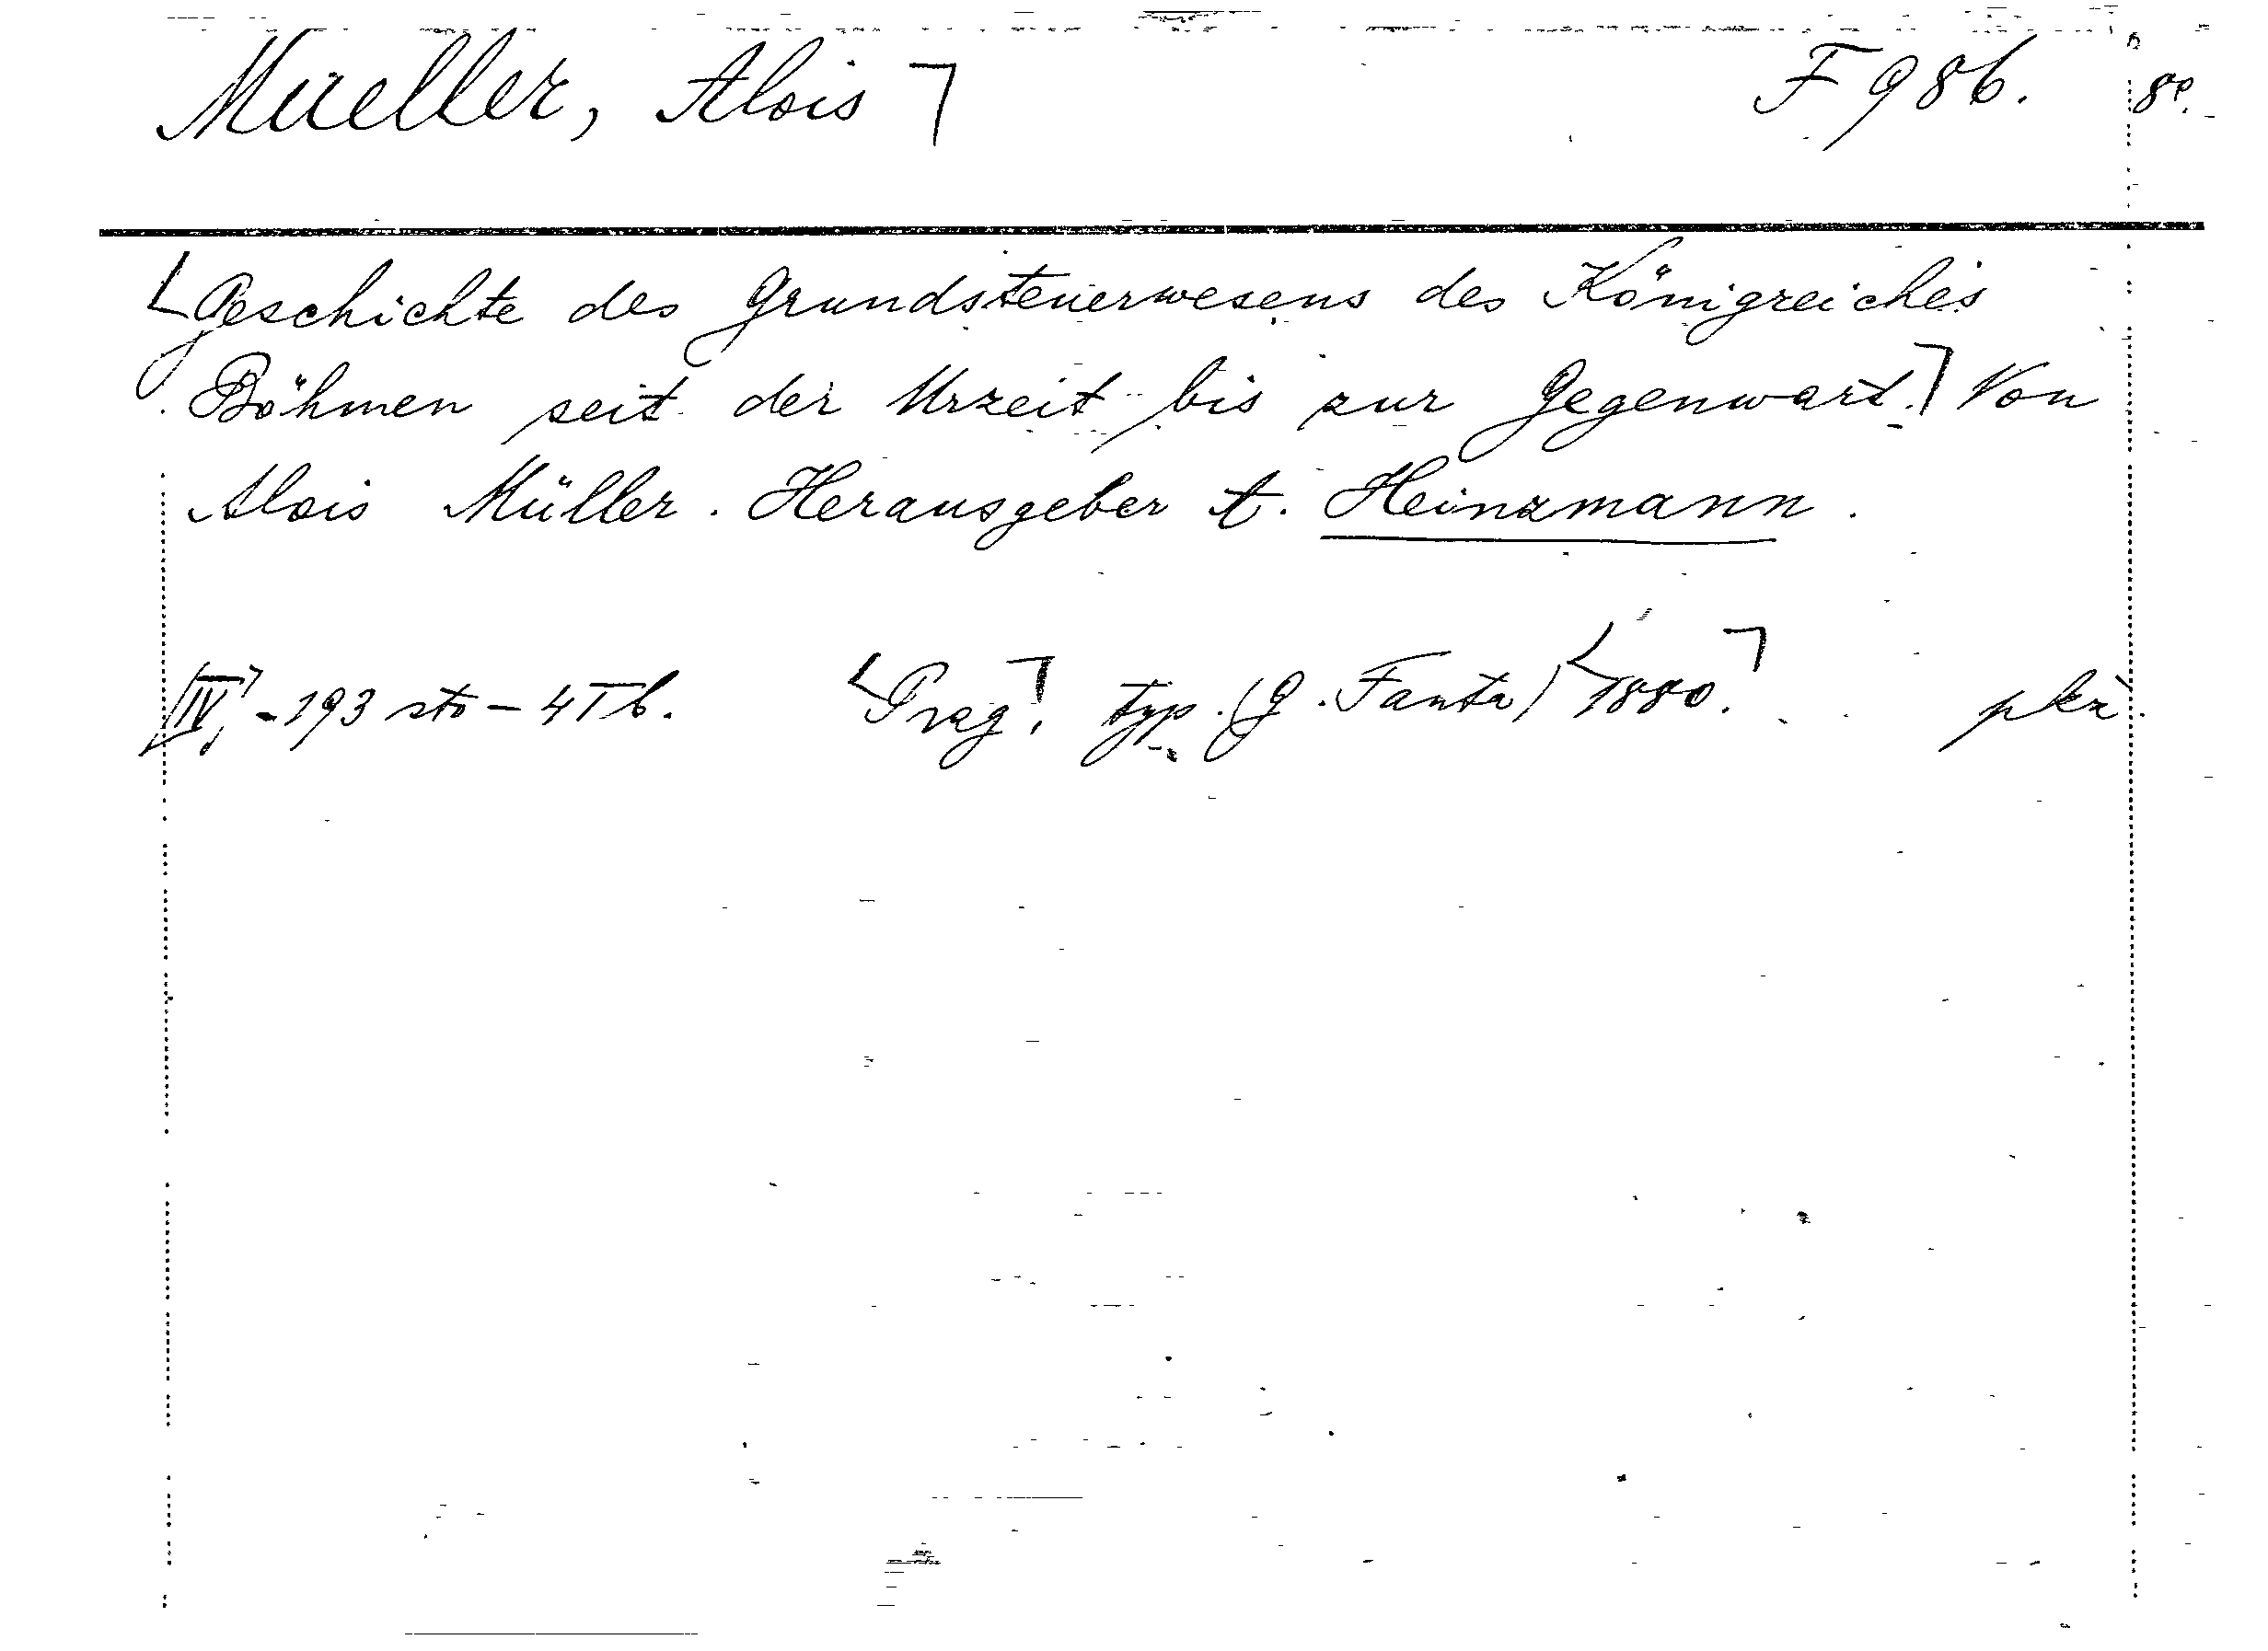 Mueller, Alois ꓶ F 986. 8°.
Geschichte des Grundsteuerwesens des Königreiches
Böhmen seit der Urzeit bis zur Gegenwart. Von
Alois Müller. Herausgeber A. Heinzmann.
IV, - 193 str - 4 Tb. Prag, typ. (G. Fanta) 1880. pkř.